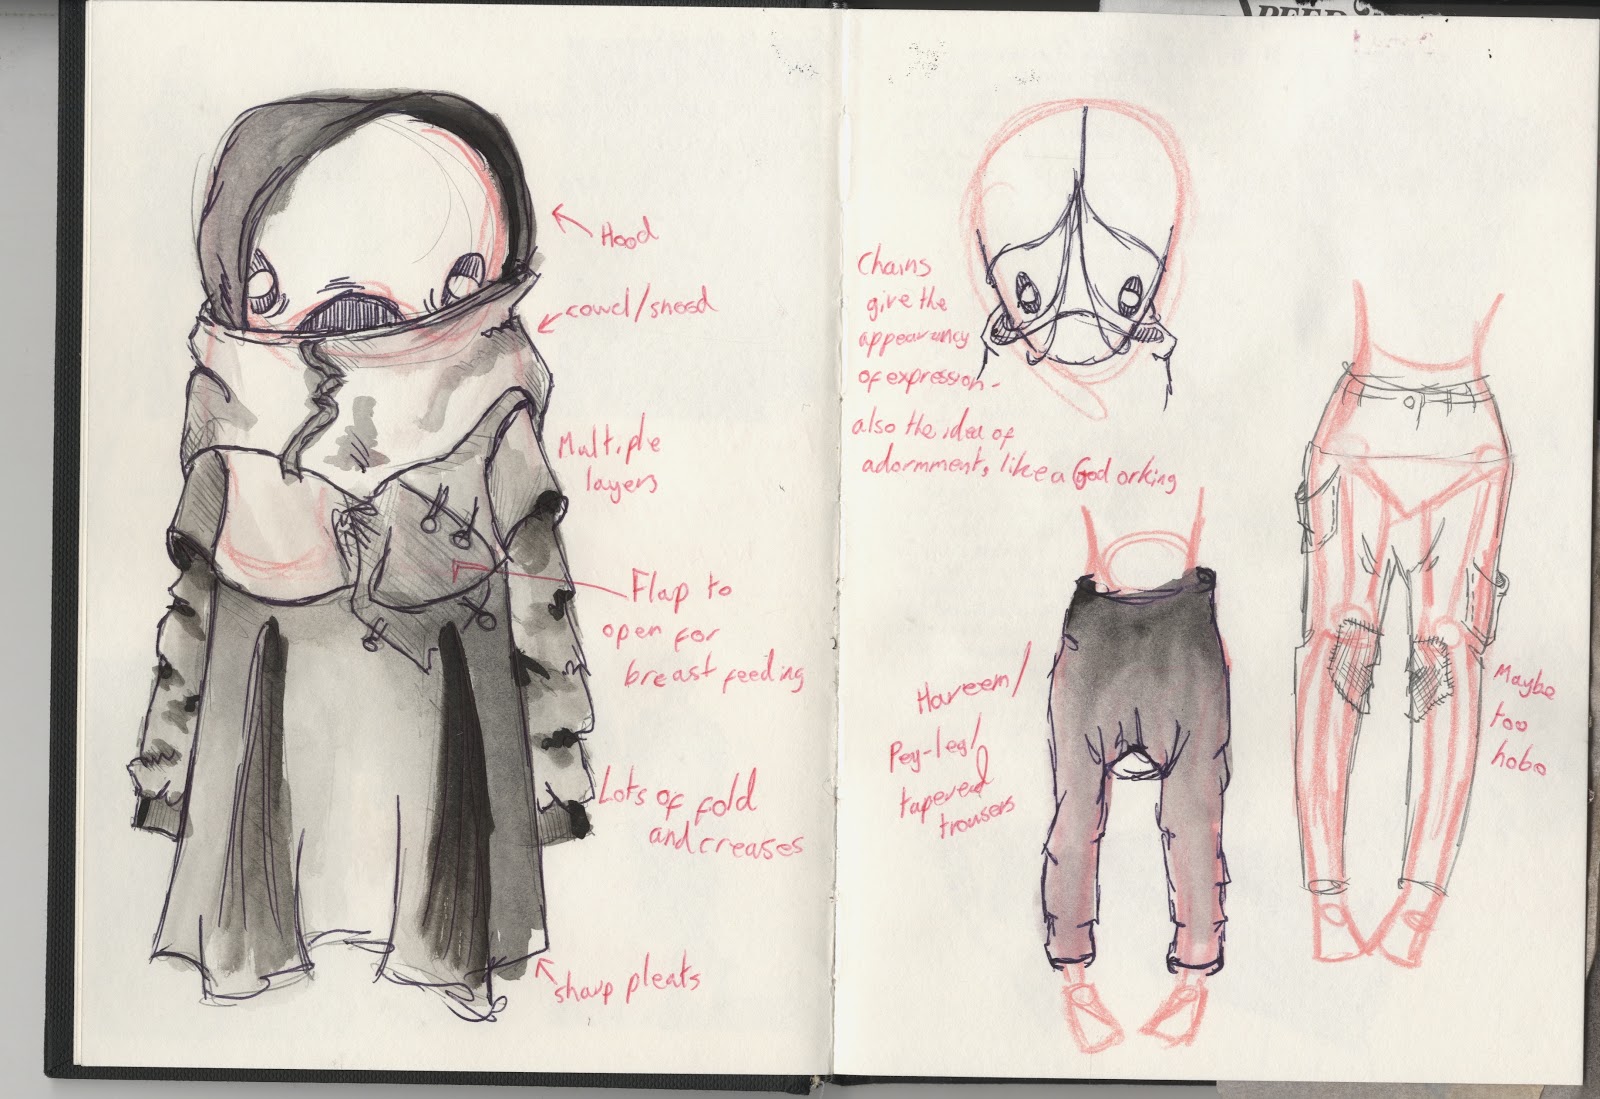 Hood
cowel/snood
Multiple
layers
Flap to
open for
breast feeding
Lots of fold
and creases
sharp pleats
Chains
give the
appearancy
of expression -
also the idea of
adornment, like a God or king
Hareem/
Peg-leg/
tapered
trousers
Maybe
too
hobo